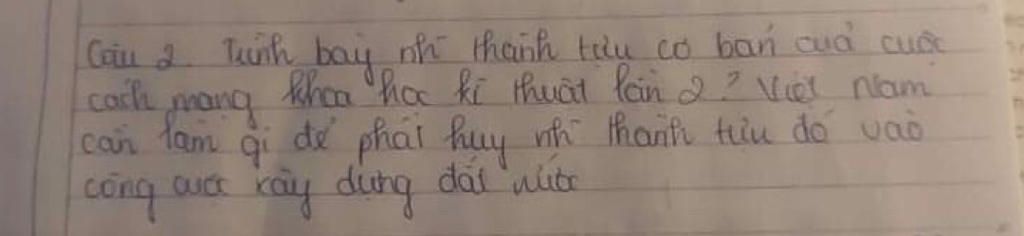 Câu 2. Trình bày nh~ thành tựu cơ bản của cuộc
cách mạng khoa học kĩ thuật lần 2? Việt Nam
cần làm gì để phát huy nh~ thành tựu đó vào
công cuộc xây dựng đất nước